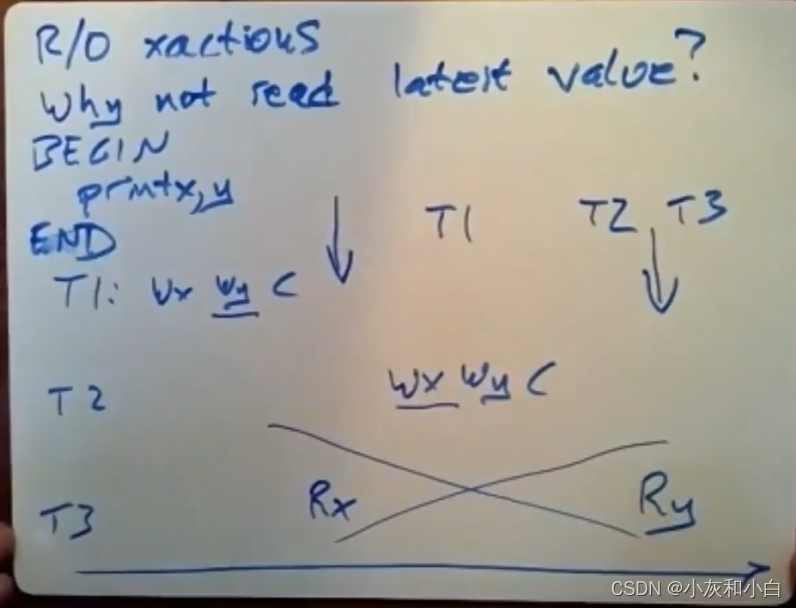 R/O xactions
Why not read latest value?
BEGIN
print x,y
END
T1 T2 T3
T1: Wx Wy C
T2 Wx Wy C
T3 Rx Ry
CSDN @小灰和小白